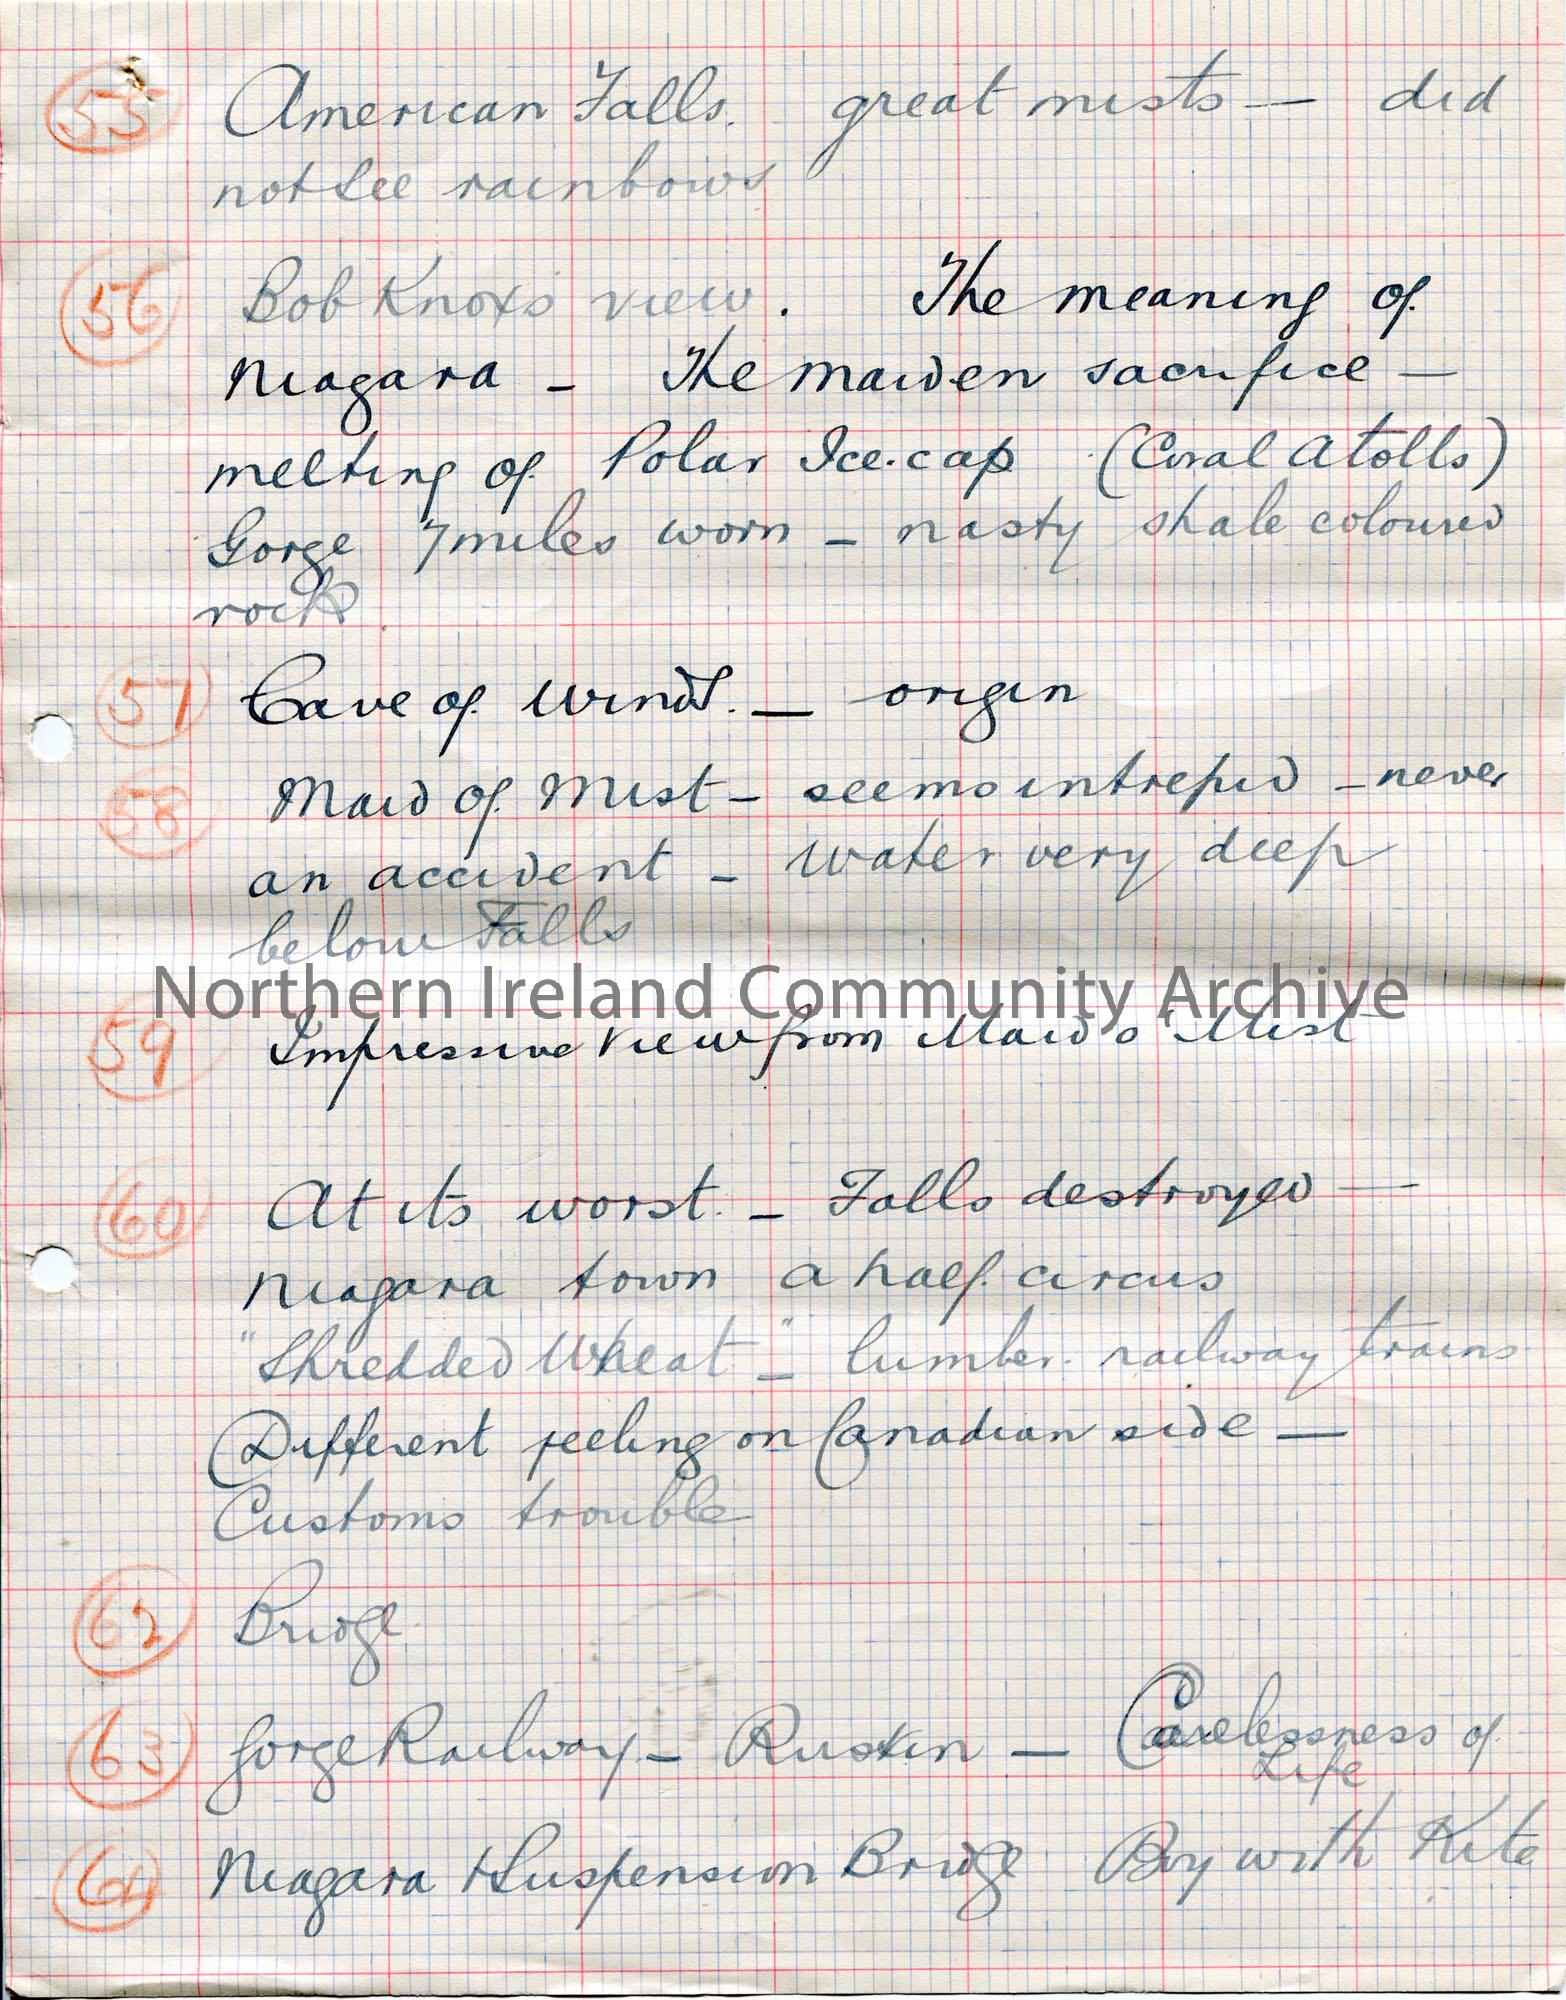 55 American Falls. great mists — did
not see rainbows
56 Bob Knox's view. The meaning of
Niagara – The maiden sacrifice —
melting of Polar Ice-cap (Coral Atolls)
Gorge 7 miles worn – nasty shale coloured
rock.
57 Cave of Winds. — origin
58 Maid of Mist – seems intrepid – never
an accident – water very deep
below Falls
Northern Ireland Community Archive
59 Impressive view from Maid o' Mist
60 At its worst. – Falls destroyed —
Niagara town a half circus
"Shredded Wheat" – lumber railway trains
Different feeling on Canadian side —
Customs trouble
62 Bridge
63 Gorge Railway – Ruskin — Carelessness of
Life
64 Niagara Suspension Bridge Boy with Kite